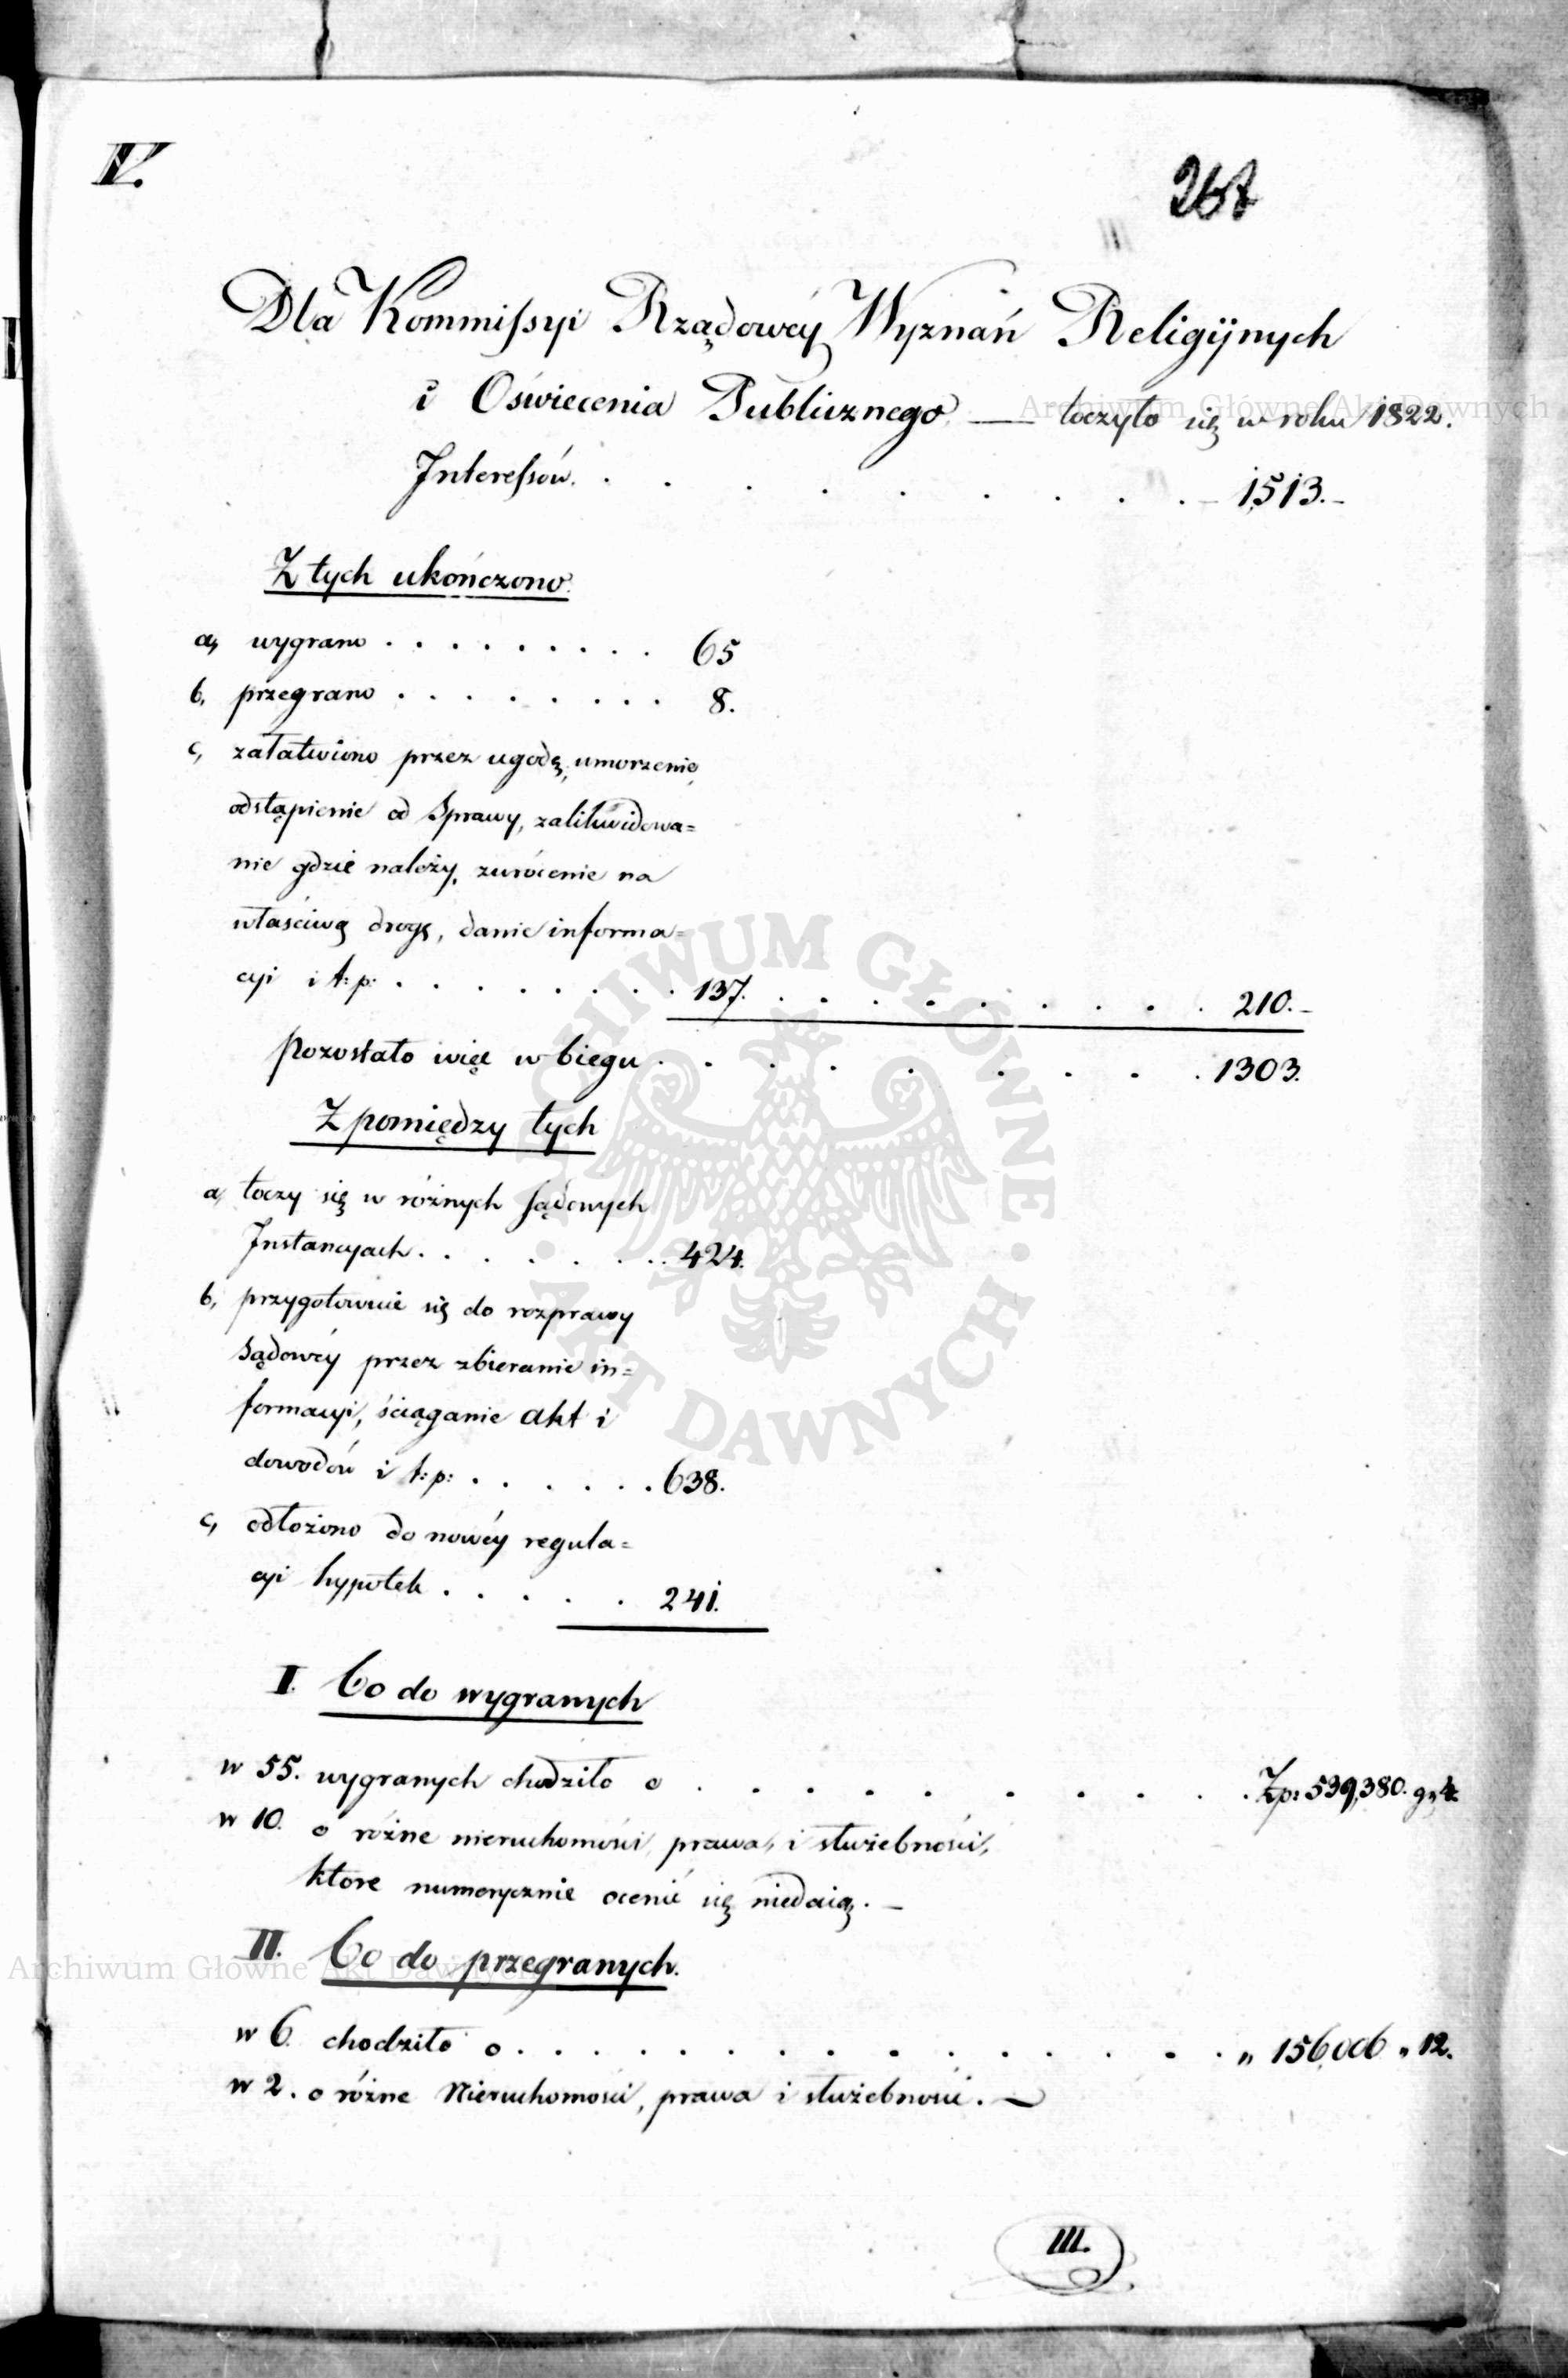 IV.
267
Dla Kommissyi Rządowéy Wyznań Religijnych
i Oświecenia Publicznego — toczyło się w roku 1822.
Interessów. . . . . . . . . . – 1513.–
Z tych ukończono.
a, wygrano . . . . . . . . . 65
b, przegrano . . . . . . . . 8.
c, załatwiono przez ugodę, umorzenie,
odstąpienie od Sprawy, zalikwidowa=
nie gdzie należy, zwrócenie na
właściwą drogę, danie informa=
cyi i t: p: . . . . . . . . 137. . . . . . . . . . 210.–
pozostało więc w biegu . . . . . . . . . 1303.
Z pomiędzy tych
a, toczy się w różnych sądowych
Instancyach . . . . . . . 424.
b, przygotowuie się do rozprawy
Sądowéy przez zbieranie in=
formacyi, ściąganie akt i
dowodów i t: p: . . . . . . 638.
c, odłożono do nowéy regula=
cyi hypotek . . . . . 241.
I. Co do wygranych
w 55. wygranych chodziło o . . . . . . . . . . Zp: 539,380. gr 4.
w 10. o różne nieruchomości, prawa, i służebności,
które numerycznie ocenić się niedaią. –
II. Co do przegranych.
w 6. chodziło o . . . . . . . . . . . . . „ 156,006 „ 12.
w 2. o różne Nieruchomości, prawa i służebności. —
III.
Archiwum Główne Akt Dawnych
ARCHIWUM GŁÓWNE · AKT DAWNYCH ·
Archiwum Główne Akt Dawnych